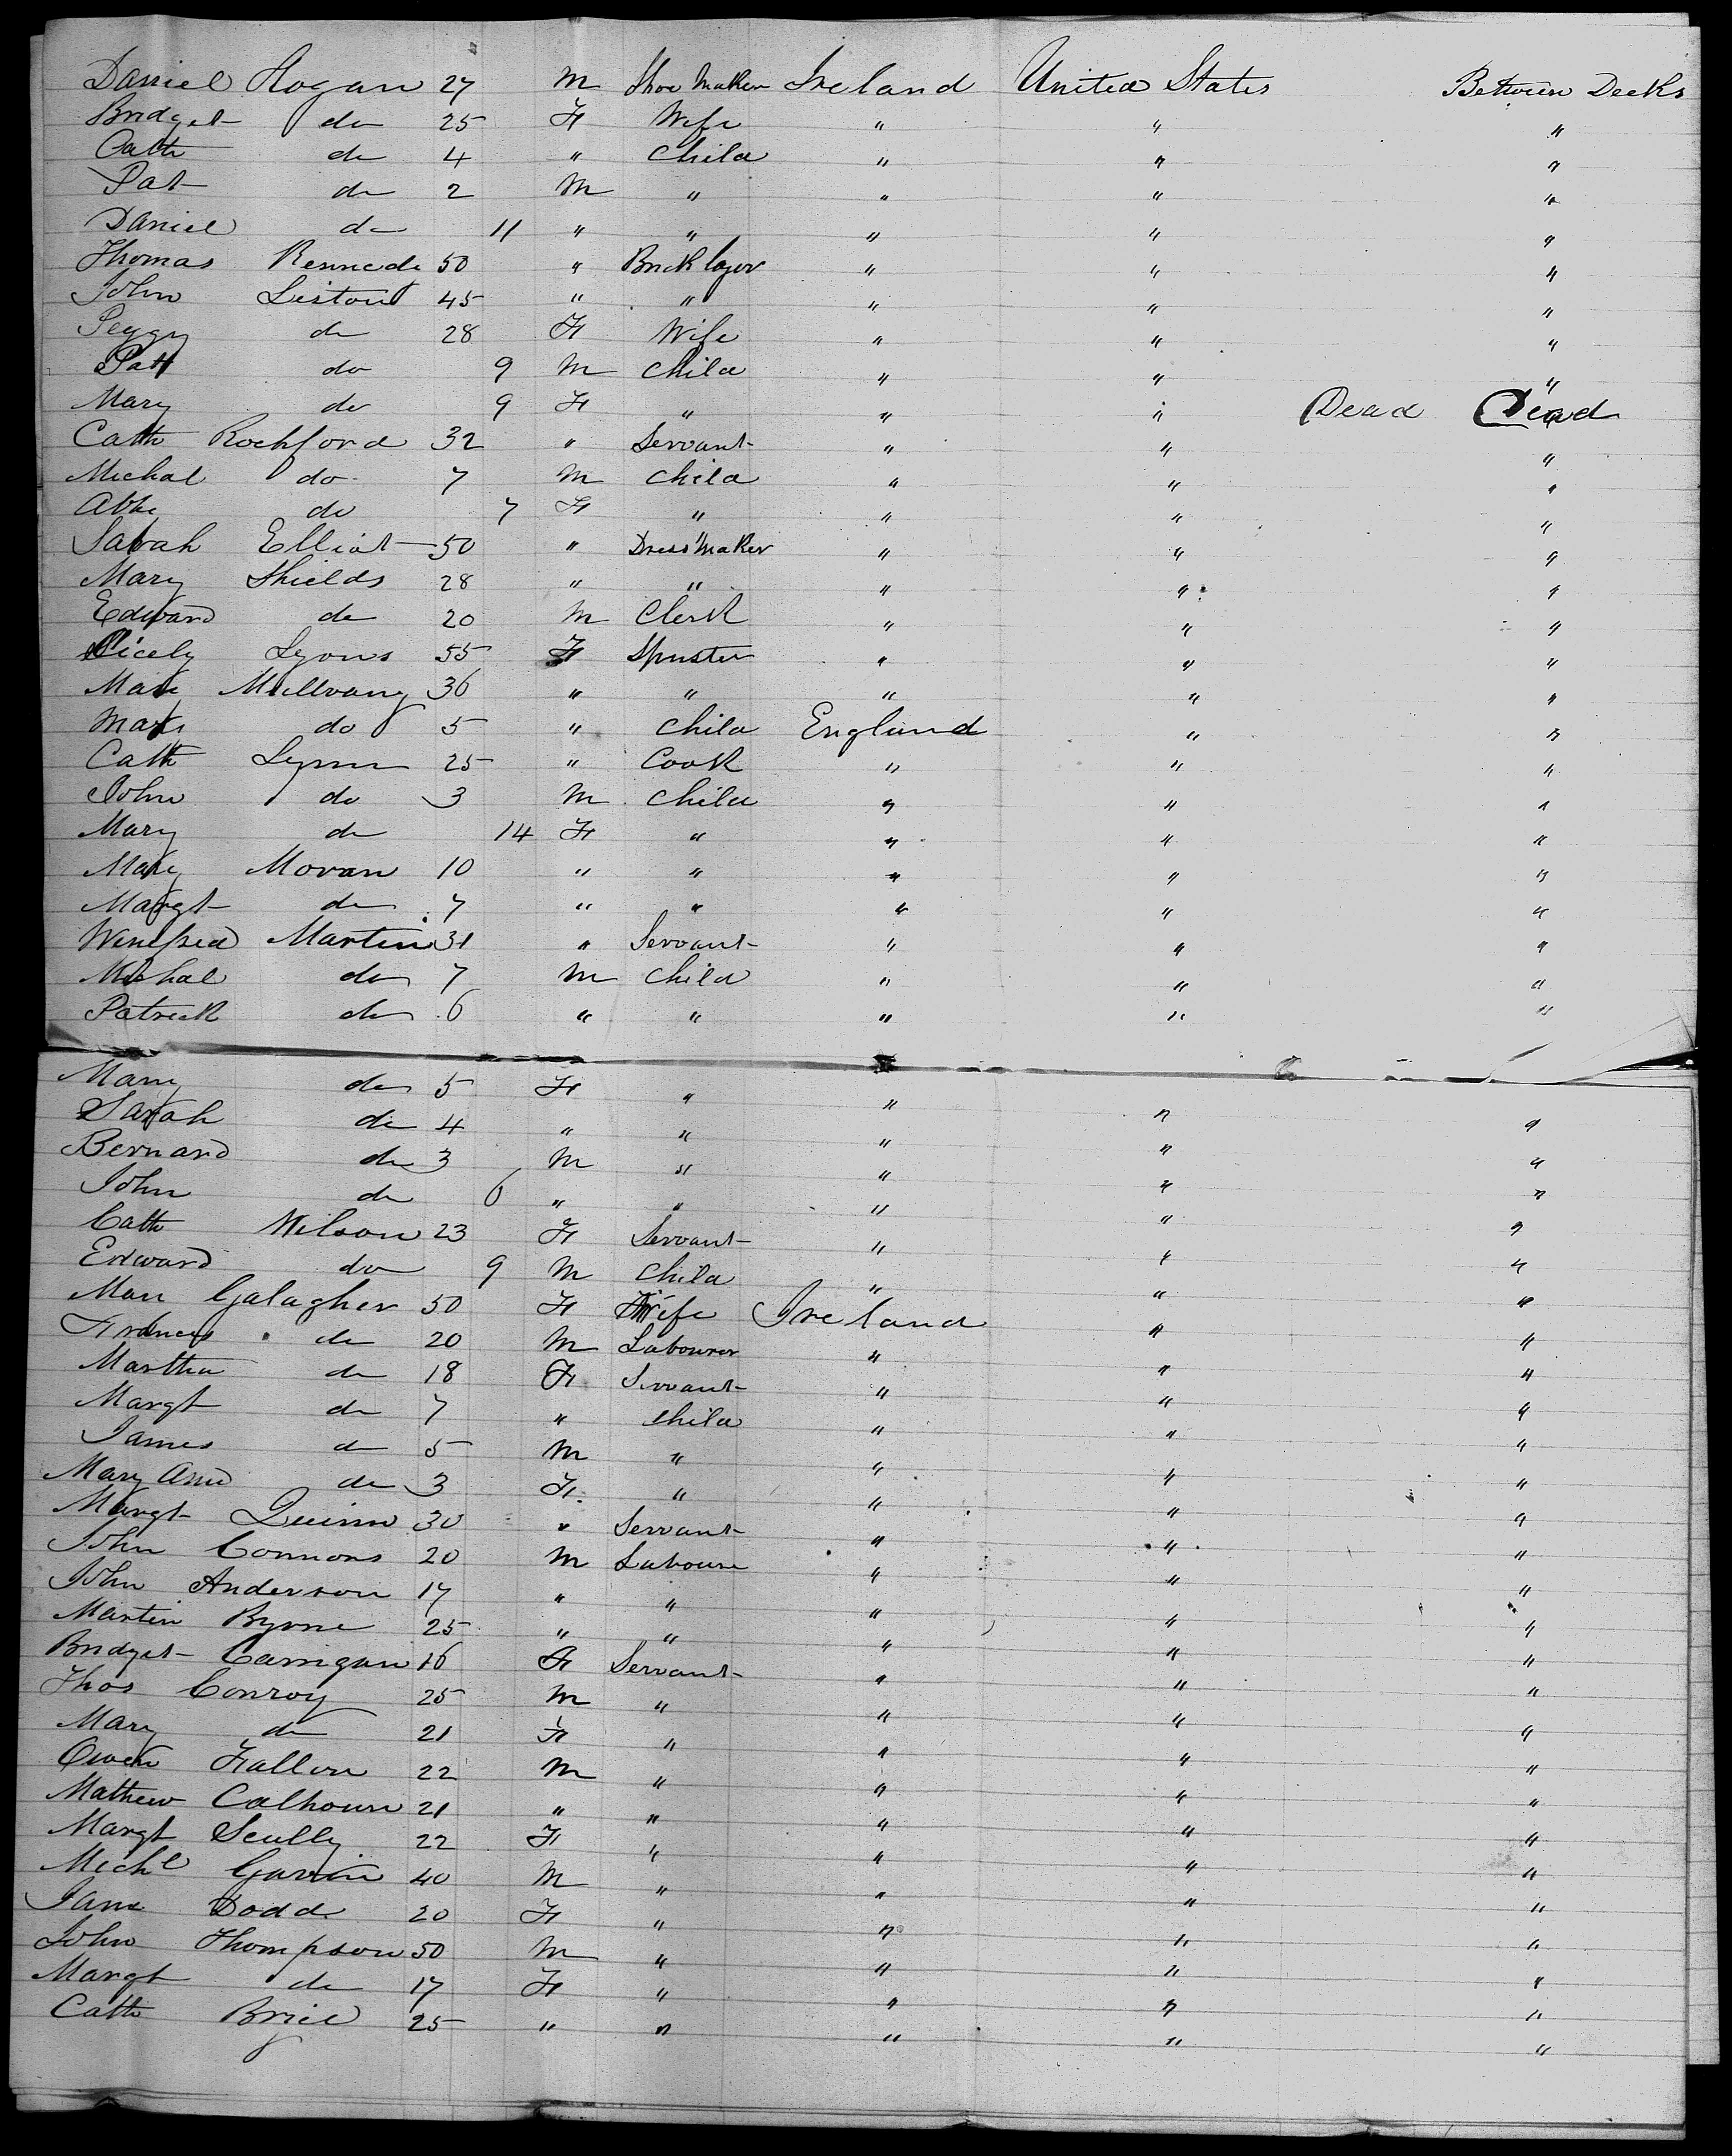 Daniel Hogan 27 M Shoe Maker Ireland United States Between Decks
Bridget do 25 F Wife " " "
Cath do 4 " Child " " "
Pat do 2 M " " " "
Daniel do 11 " " " " "
Thomas Kennedy 50 " Bricklayer " " "
John Liston 45 " " " " "
Peggy do 28 F Wife " " "
Patt do 9 M Child " " "
Mary do 9 F " " " Dead Dead
Cath Rochford 32 " Servant " " "
Michal do 7 M Child " " "
Abby do 7 F " " " "
Sarah Elliot 50 " Dress Maker " " "
Mary Shields 28 " " " " "
Edward do 20 M Clerk " " "
Cicely Lyons 55 F Spinster " " "
Mary McIlvany 36 " " " " "
Mary do 5 " Child England " "
Cath Lynn 25 " Cook " " "
John do 3 M Child " " "
Mary do 14 F " " " "
Mary Moran 10 " " " " "
Margt do 7 " " " " "
Winefred Martin 31 " Servant " " "
Michal do 7 M Child " " "
Patrick do 6 " " " " "
Mary do 5 F " " " "
Sarah do 4 " " " " "
Bernard do 3 M " " " "
John do 6 " " " " "
Cath Wilson 23 F Servant " " "
Edward do 9 M Child " " "
Mary Galagher 50 F Wife Ireland " "
Francis do 20 M Labourer " " "
Martha do 18 F Servant " " "
Margt do 7 " Child " " "
James do 5 M " " " "
Mary Ann do 3 F " " " "
Margt Quinn 30 " Servant " " "
John Connors 20 M Labourer " " "
John Anderson 17 " " " " "
Martin Byrne 25 " " " " "
Bridget Carrigan 16 F Servant " " "
Thos Conroy 25 M " " " "
Mary do 21 F " " " "
Owen Fallon 22 M " " " "
Mathew Calhoun 21 " " " " "
Margt Scully 22 F " " " "
Michl Garvin 40 M " " " "
Jane Dodd 20 F " " " "
John Thompson 50 M " " " "
Margt do 17 F " " " "
Cath 25 " " " " "